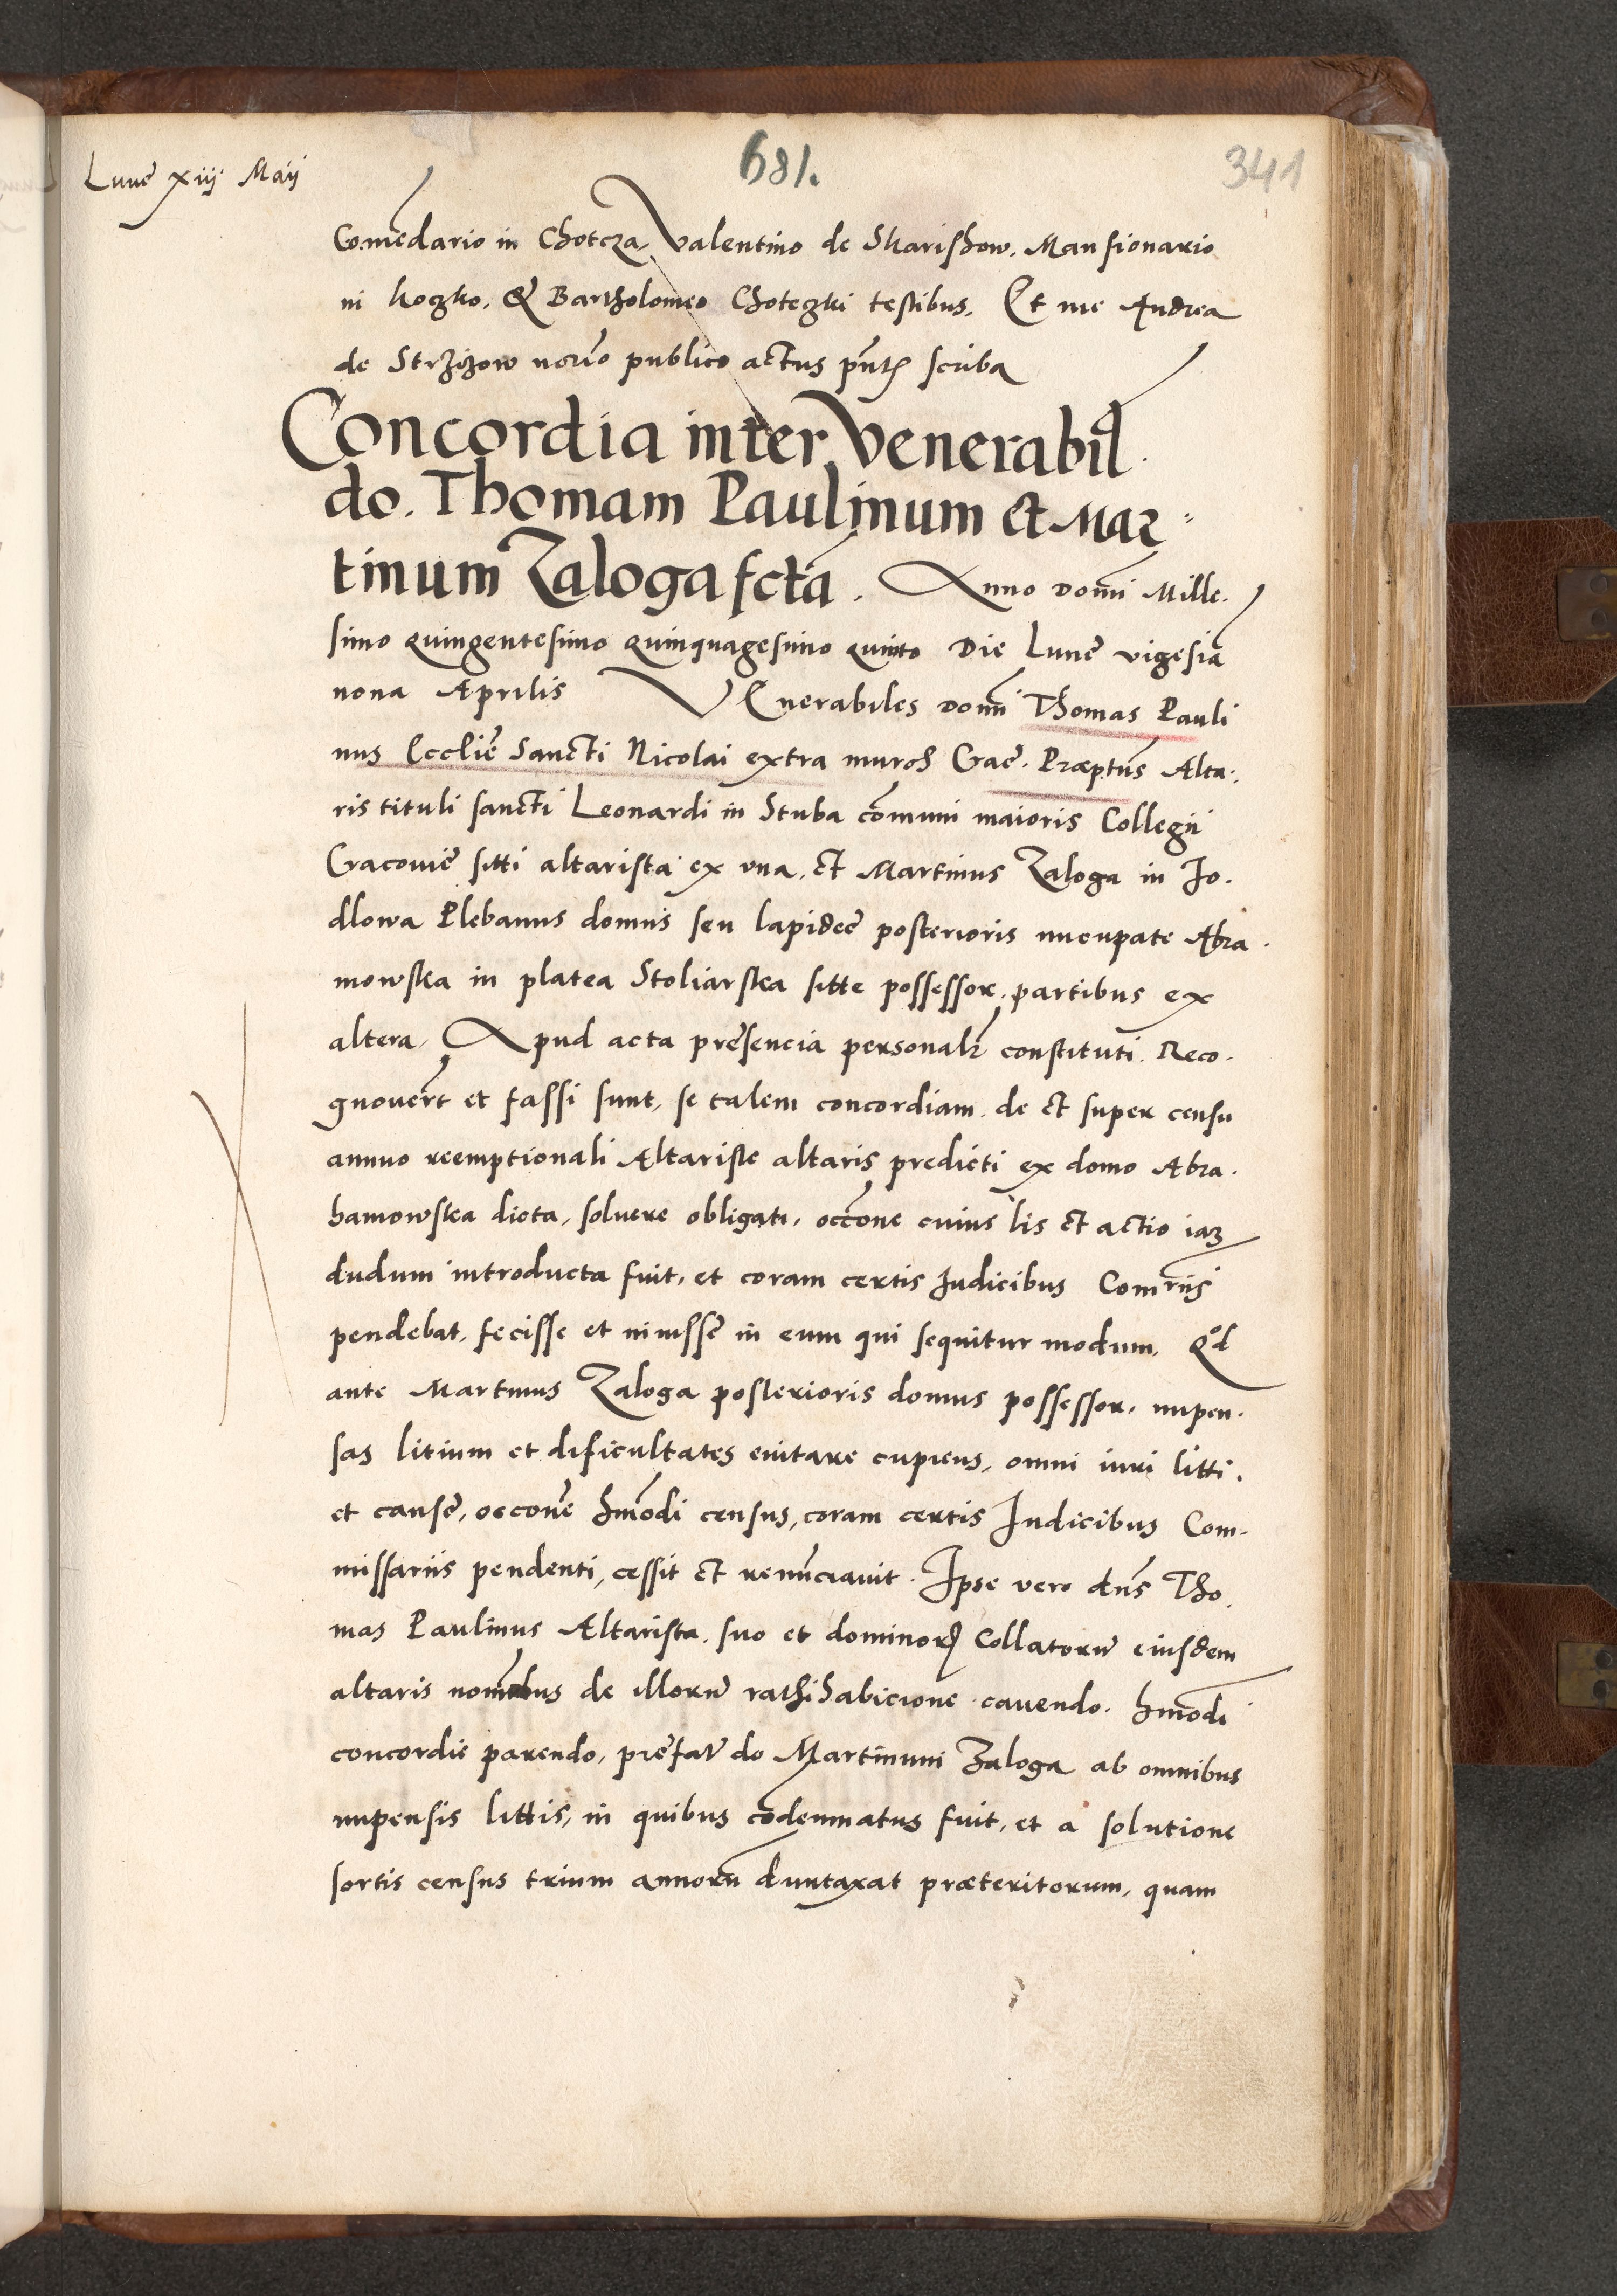 Lunę xiij Maij
681.
341
Comēdario in Chotcza, Valentino de Skarishow. Mansionario
in Koczko. & Bartholomeo Choteczki testibus. Et me Andrea
de Strzizow norīo publico actus pñtꝭ scriba
Concordia inter Venerabil.
do. Thomam Paulinum et Mar⸗
tinum Zaloga fctā. Anno Domī Mille.
simo quingentesimo quinquagesimo quinto Die Lunę vigesiā
nona Aprilis VEnerabiles Domī Thomas Pauli
nus Ecclię Sancti Nicolai extra muros Crac. Præptūs Alta.
ris tituli sancti Leonardi in Stuba cōmuni maioris Collegii
Cracouię sitti altarista ex vna. et Martinus Zaloga in Jo.
dlowa Plebanus domus seu lapideę posterioris nucupate Abra.
mowska in platea Stoliarska sitte possessor. partibus ex
altera, Apud acta presencia personalr constituti. Reco.
gnouert et fassi sunt, se talem concordiam. de et super censu
annuo reemptionali Altariste altaris predicti ex domo Abra.
hamowska dicta, soluere obligati, occōne cuius lis et actio iaʒ
dudum introducta fuit, et coram certis Judicibus Comriis
pendebat, fecisse et iniisse in eum qui sequitur modum. Qd
ante Martinus Zaloga posterioris domus possessor, impen.
sas litium et dificultates euitare cupiens, omni iuri litti.
et causę, occone hmōdi census, coram certis Iudicibus Com.
missariis pendenti, cessit et renūciauit. Ipse vero dns Tho.
mas Paulinus Altarista. suo et dominorꝝ Collatorū eiusdem
altaris noībus de illorū rathihabicione cauendo. hmōdi
concordię parendo, prefat do Martinum Zaloga ab omnibus
impensis littis, in quibus cōdemnatus fuit, et a solutione
sortis census trium annorū duntaxat præteritorum, quam